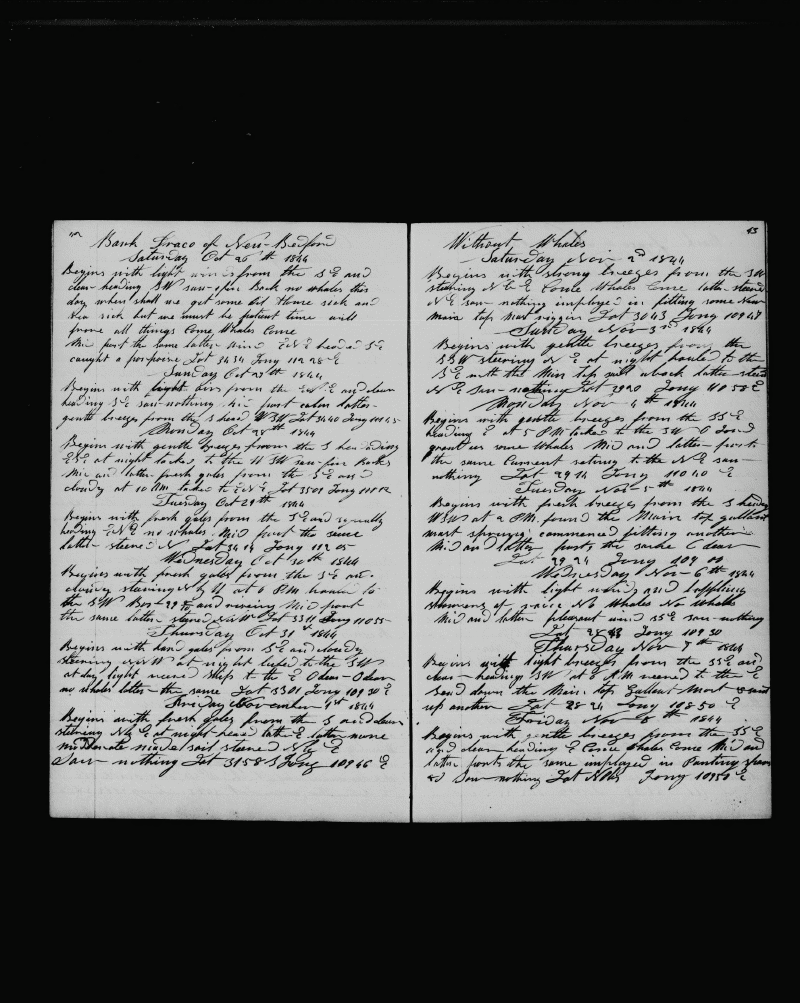 Bark Draco of New-Bedford
Saturday Oct 26th 1844
Begins with light winds from the S E and
clear heading SW saw fin Back no whales this
day when shall we get some old Horse sick and
Sea sick but we must be patient time will
prove all things Come Whales Come
Mid part the same latter wind ENE headed SE
caught a porpoise Lat 3434 Long 112 28 E
Sunday Oct 27th 1844
Begins with light airs from the E and clear
heading S E saw nothing Mid part calm latter
gentle breezes from the S head WSW Lat 3440 Long
Monday Oct 28th 1844
Begins with gentle breezes from the S heading
ESE at night tacked to the WSW saw fin Backs
Mid and latter fresh gales from the S E and
cloudy at 10 AM tacked to ENE Lat 3501 Long
Tuesday Oct 29th 1844
Begins with fresh gales from the S E and squally
heading ENE no whales Mid part the same
latter steered N Lat 3414 Long 112 05
Wednesday Oct 30th 1844
Begins with fresh gales from the S E and
cloudy steering N by W at 6 P.M. hauled to
the SW Bar 29 and raining Mid part
the same latter steered NNW Lat 3311 Long 110 55
Thursday Oct 31st 1844
Begins with hard gales from S E and cloudy
steering NNW at night luffed to the SW
at day light weared ship to the E O dear O dear
no whales latter the same Lat 3301 Long 109 30 E
Friday November 1st 1844
Begins with fresh gales from the S and clear
steering N by E at night head to the E latter more
moderate made sail steered N by E
Saw nothing Lat 3158 S Long 109 46 E
43
Without Whales
Saturday Nov 2nd 1844
Begins with strong breezes from the SW
steering N E E Come Whales Come latter steered
N E saw nothing imployed in fitting some New
Main top mast riggin Lat 3043 Long 109 47
Sunday Nov 3rd 1844
Begins with gentle breezes from the
SSW steering N E at night hauled to the
S E with the Main top sail aback latter steered
N E Saw nothing Lat 2920 Long 110 58 E
Monday Nov 4th 1844
Begins with gentle breezes from the SSE
heading E at 5 P M tacked to the SW O Lord
grant us some Whales Mid and latter parts
the same Current seting to the N E saw
nothing Lat 2914 Long 110 40 E
Tuesday Nov 5th 1844
Begins with fresh breezes from the S heading
WSW at 2 P.M. found the Main top gallant
mast sprung commenced fitting another
Mid and latter parts the same O dear
Lat 29 24 Long 109 00
Wednesday Nov 6th 1844
Begins with light winds and
showers of raine No Whales No Whales
Mid and latter pleasant wind SSE saw nothing
Lat 28 Long 109 30
Thursday Nov 7th 1844
Begins with light breezes from the SSE and
clear heading SW at 8 A.M. weared to the E
Send down the Main top Gallant Mast & send
up another Lat 28 24 Long 108 50 E
Friday Nov 8th 1844
Begins with gentle breezes from the SSE
and clear heading E Come Whales Come Mid and
latter parts the same imployed in Painting spars
Saw nothing Lat Long 109 50 E